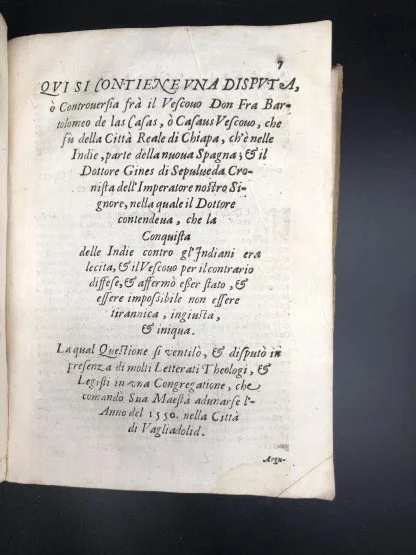 7
QVI SI CONTIENE VNA DISPVTA,
ò Controuersia frà il Vescouo Don Fra Bar-
tolomeo de las Casas, ò Casaus Vescouo, che
fù della Città Reale di Chiapa, ch'è nelle
Indie, parte della nuoua Spagna; & il
Dottore Gines di Sepulueda Cro-
nista dell'Imperatore nostro Si-
gnore, nella quale il Dottore
contendeua, che la
Conquista
delle Indie contro gl'Indiani era
lecita, & il Vescouo per il contrario
diffese, & affermò esser stato, &
essere impossibile non essere
tirannica, ingiusta,
& iniqua.
La qual Questione si ventilò, & disputò in
presenza di molti Letterati Theologi, &
Legisti in vna Congregatione, che
comandò Sua Maestà adunarse l'-
Anno del 1550. nella Città
di Vagliadolid.
Argu-